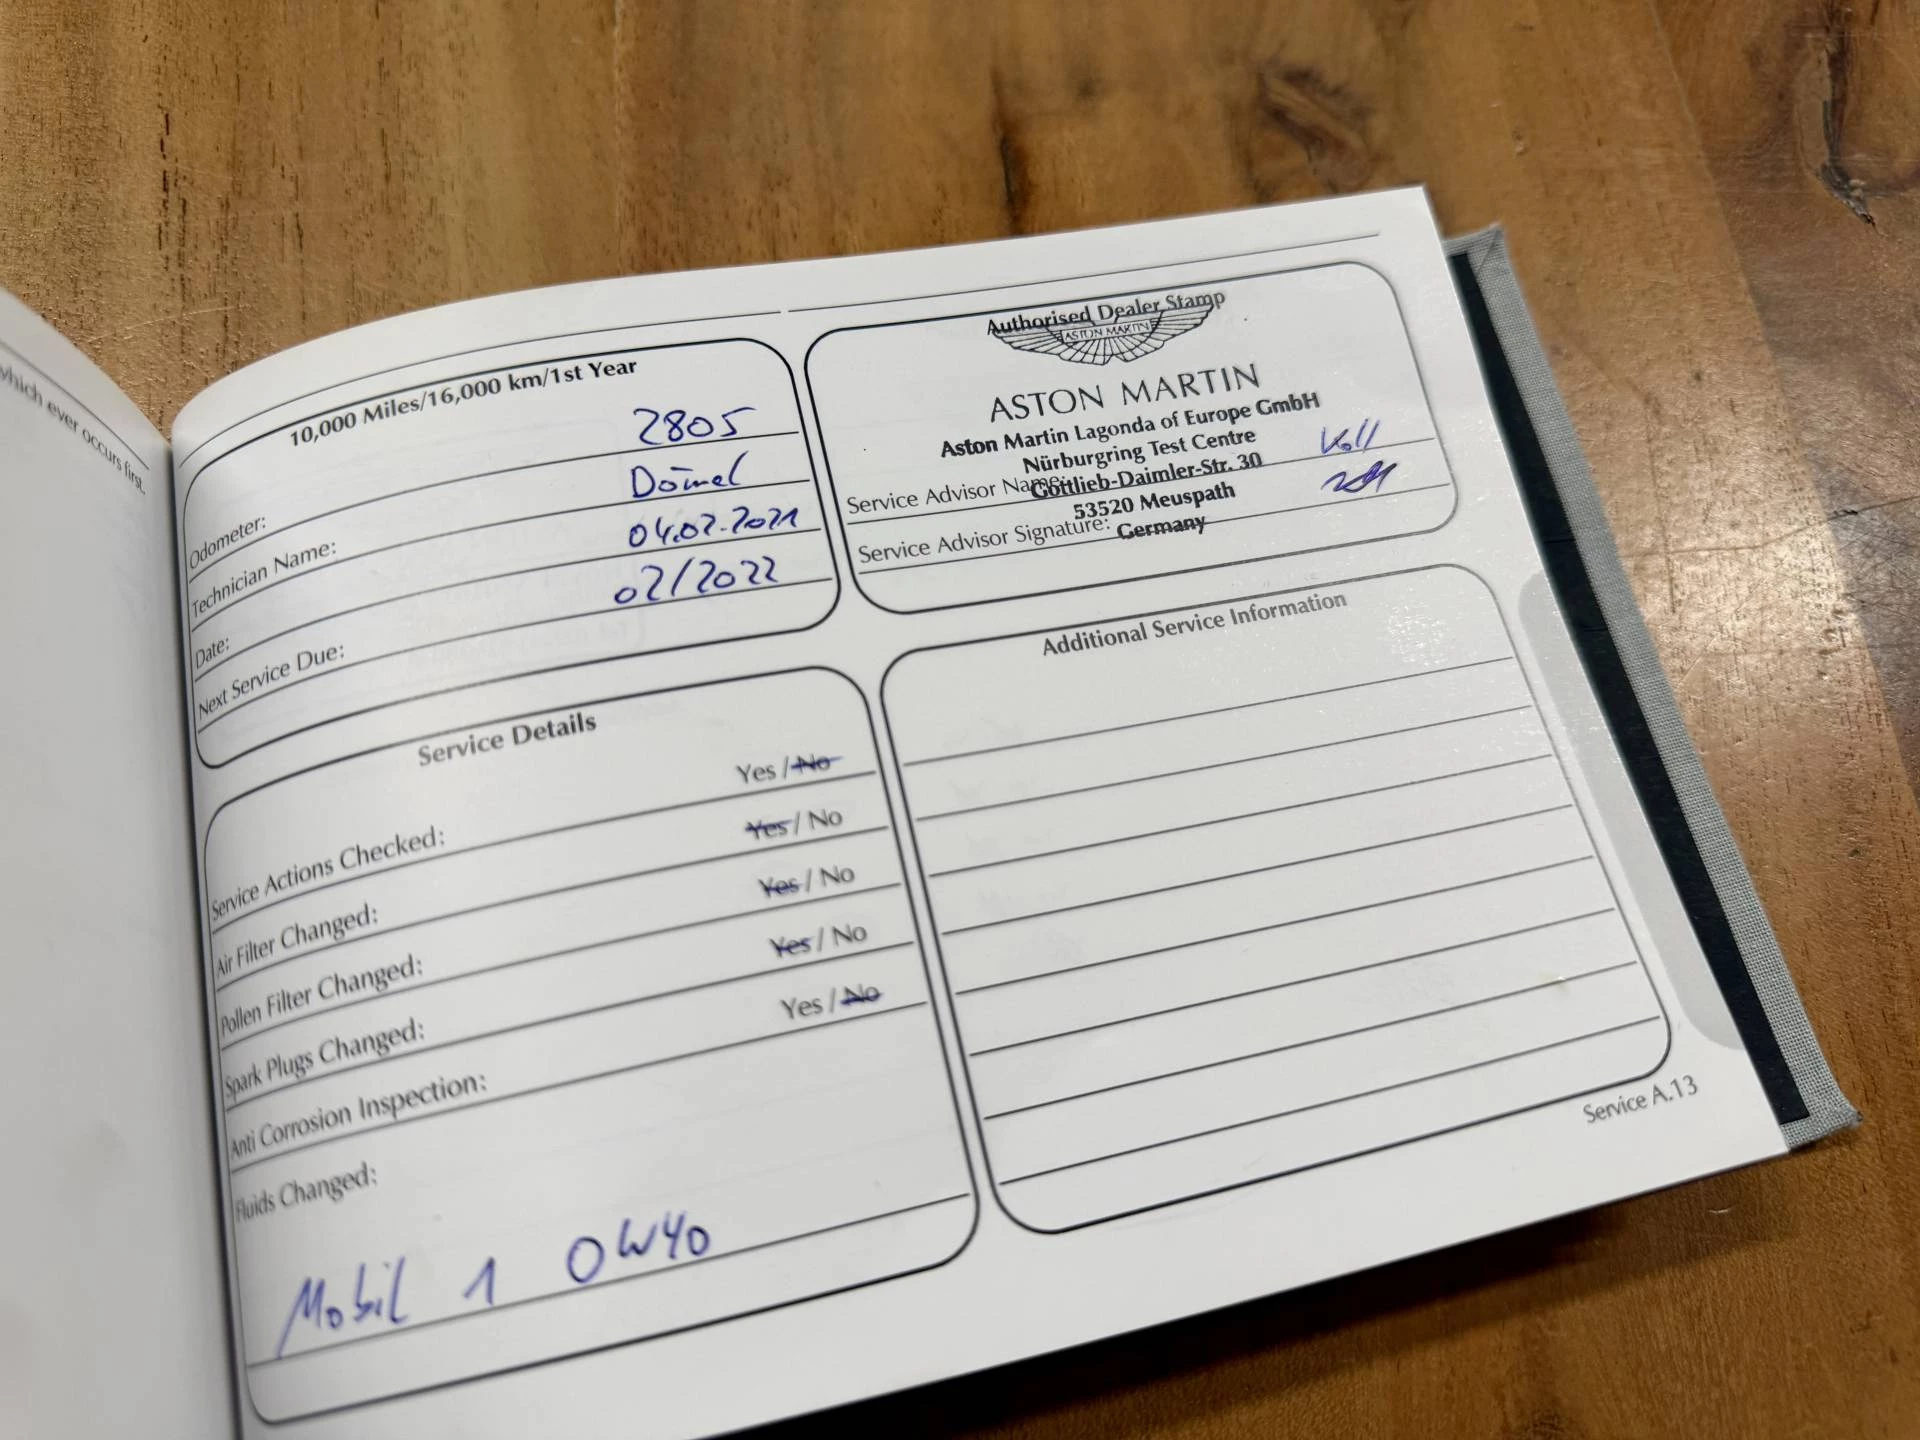 which ever occurs first.
10,000 Miles/16,000 km/1st Year
Odometer: 2805
Technician Name: Dömel
Date: 04.02.2021
Next Service Due: 02/2022
Authorised Dealer Stamp
ASTON MARTIN
ASTON MARTIN
Aston Martin Lagonda of Europe GmbH
Nürburgring Test Centre
Gottlieb-Daimler-Str. 30
53520 Meuspath
Germany
Service Advisor Name: Koll
Service Advisor Signature:
Service Details
Service Actions Checked: Yes / No
Air Filter Changed: Yes / No
Pollen Filter Changed: Yes / No
Spark Plugs Changed: Yes / No
Anti Corrosion Inspection: Yes / No
Fluids Changed:
Mobil 1 0W40
Additional Service Information
Service A.13